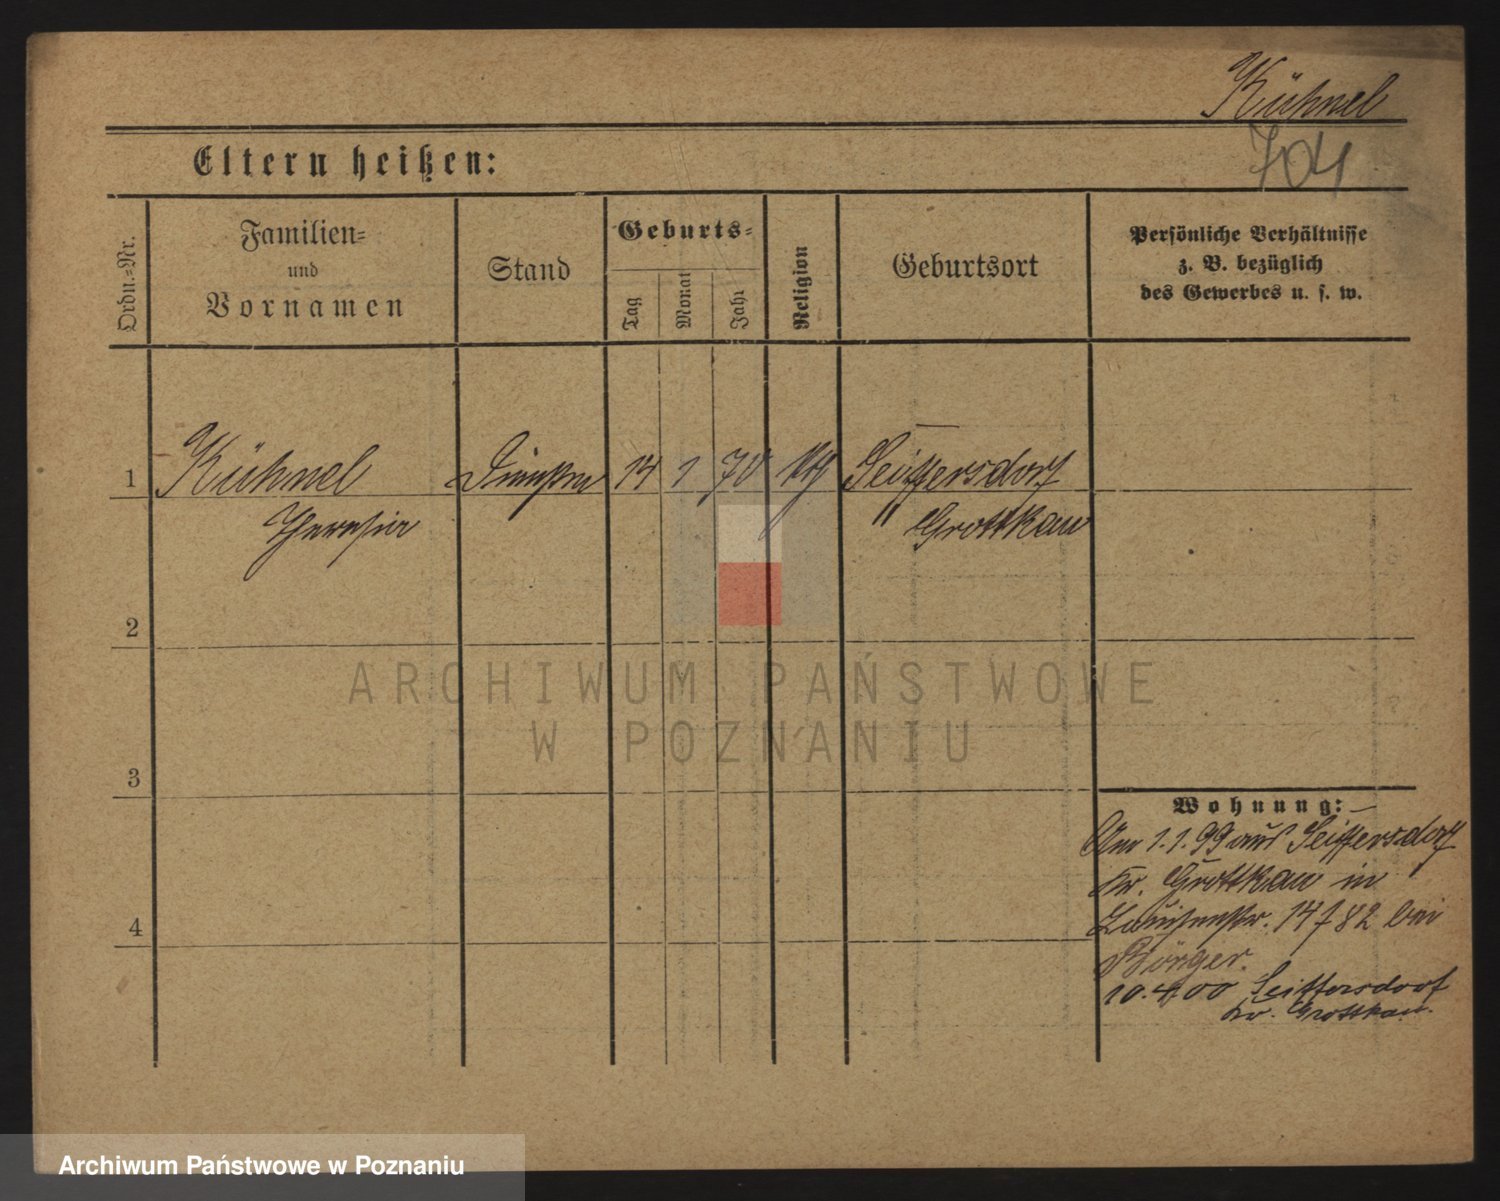 Kühnel
704
Eltern heißen:
Ordn.-Nr.
Familien-
und
Vornamen
Stand
Geburts-
Tag
Monat
Jahr
Religion
Geburtsort
Persönliche Verhältnisse
z. B. bezüglich
des Gewerbes u. s. w.
1 Kühnel 14 1 70 Seiffersdorf
Theresia Grottkau
2
ARCHIWUM PAŃSTWOWE
W POZNANIU
3
Wohnung:
Am 1.1.99 aus Seiffersdorf
Kr. Grottkau in
Louisenstr. 14 782 bei
4
Börger.
10.4.00 Seiffersdorf
Kr. Grottkau.
Archiwum Państwowe w Poznaniu